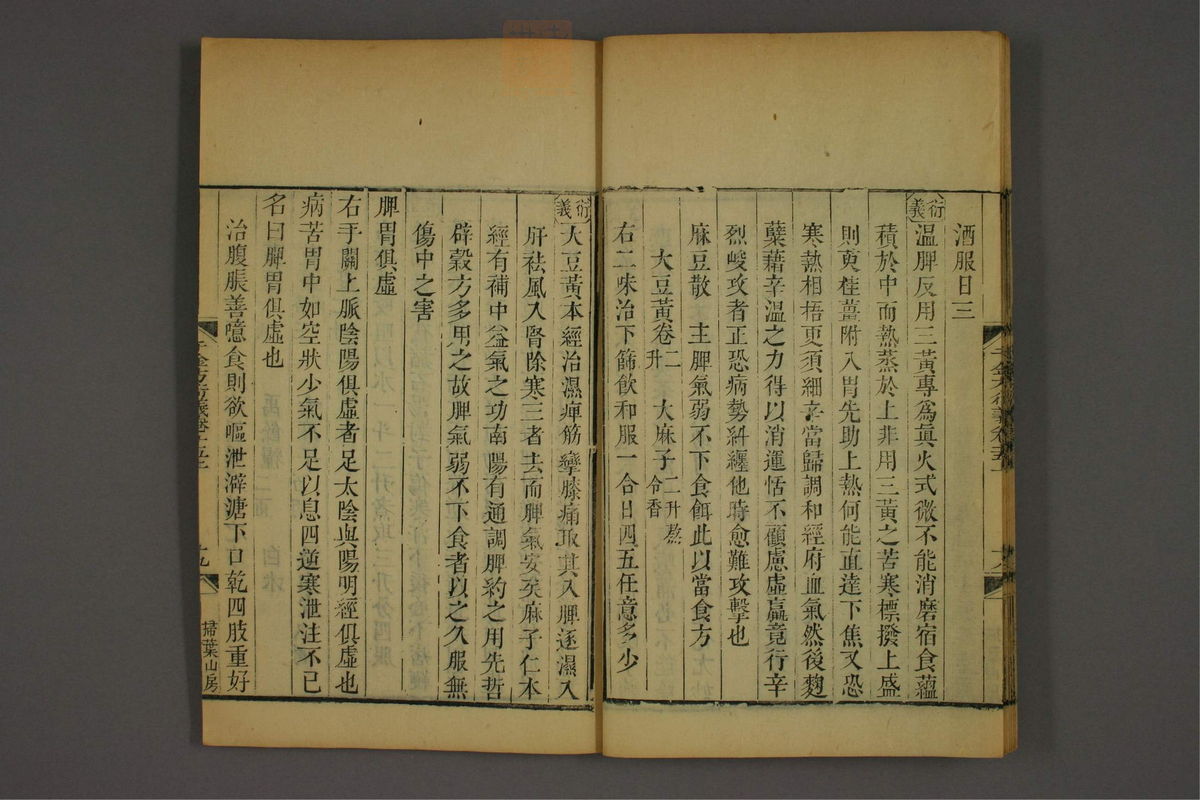 酒服日三
衍義 溫脾反用三黃專爲眞火式微不能消磨宿食蘊
積於中而熱蒸於上非用三黃之苦寒標撥上盛
則萸桂薑附入胃先助上熱何能直達下焦又恐
寒熱相捂更須細辛當歸調和經府血氣然後麴
蘗藉辛溫之力得以消運恬不顧慮虛羸竟行辛
烈峻攻者正恐病勢糾纏他時愈難攻擊也
麻豆散 主脾氣弱不下食餌此以當食方
大豆黃卷二升 大麻子二升熬令香
右二味治下篩飲和服一合日四五任意多少
衍義 大豆黃本經治濕痺筋攣膝痛取其入脾逐濕入
肝祛風入腎除寒三者去而脾氣安矣麻子仁本
經有補中益氣之功南陽有通調脾約之用先哲
辟穀方多用之故脾氣弱不下食者以之久服無
傷中之害
脾胃俱虛
右手關上脈陰陽俱虛者足太陰與陽明經俱虛也
病苦胃中如空狀少氣不足以息四逆寒泄注不已
名曰脾胃俱虛也
治腹脹善噫食則欲嘔泄澼溏下口乾四肢重好
千金方衍義卷十五上
十九
掃葉山房